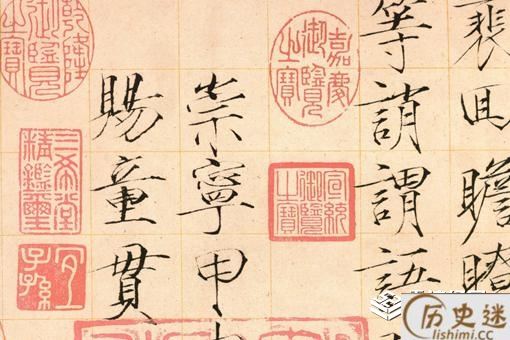 裴回瞻眺
等誚謂語
崇寧甲
賜童貫
嘉慶御覽之寶
宣統御覽之寶
乾隆御覽之寶
三希堂精鑑璽
宜子孫
历史迷
lishimi.cc